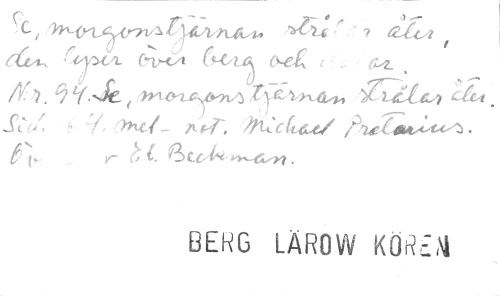 Se, morgonstjärnan strålar åter,
den lyser över berg och dalar.
Nr. 94. Se, morgonstjärnan strålar åter.
Sid. 64. mel-not. Michael Pretorius.
Et. Beckman.
BERG LÄROW KÖREN